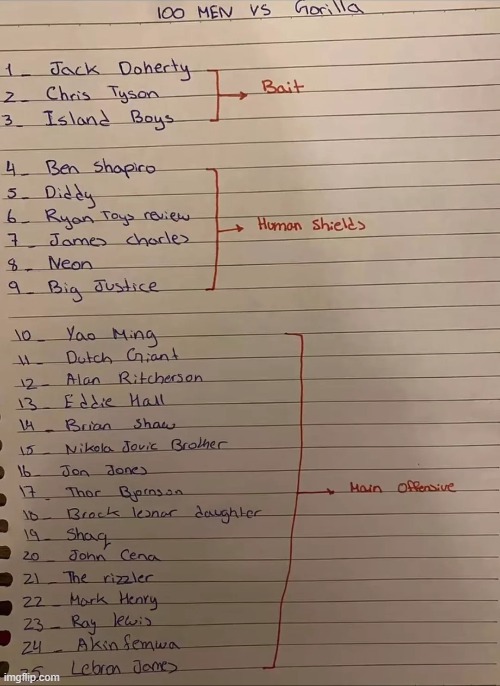 100 MEN VS Gorilla
1 - Jack Doherty
2 - Chris Tyson
3 - Island Boys
Bait
4 - Ben Shapiro
5 - Diddy
6 - Ryan Toys review
7 - James charles
8 - Neon
9 - Big Justice
Human shields
10 - Yao Ming
11 - Dutch Giant
12 - Alan Ritcherson
13 - Eddie Hall
14 - Brian Shaw
15 - Nikola Jovic Brother
16 - Jon Jones
17 - Thor Bjornson
18 - Brock lesnar daughter
19 - Shaq
20 - John Cena
21 - The rizzler
22 - Mark Henry
23 - Ray lewis
24 - Akinfemwa
25 - Lebron James
Main Offensive
imgflip.com